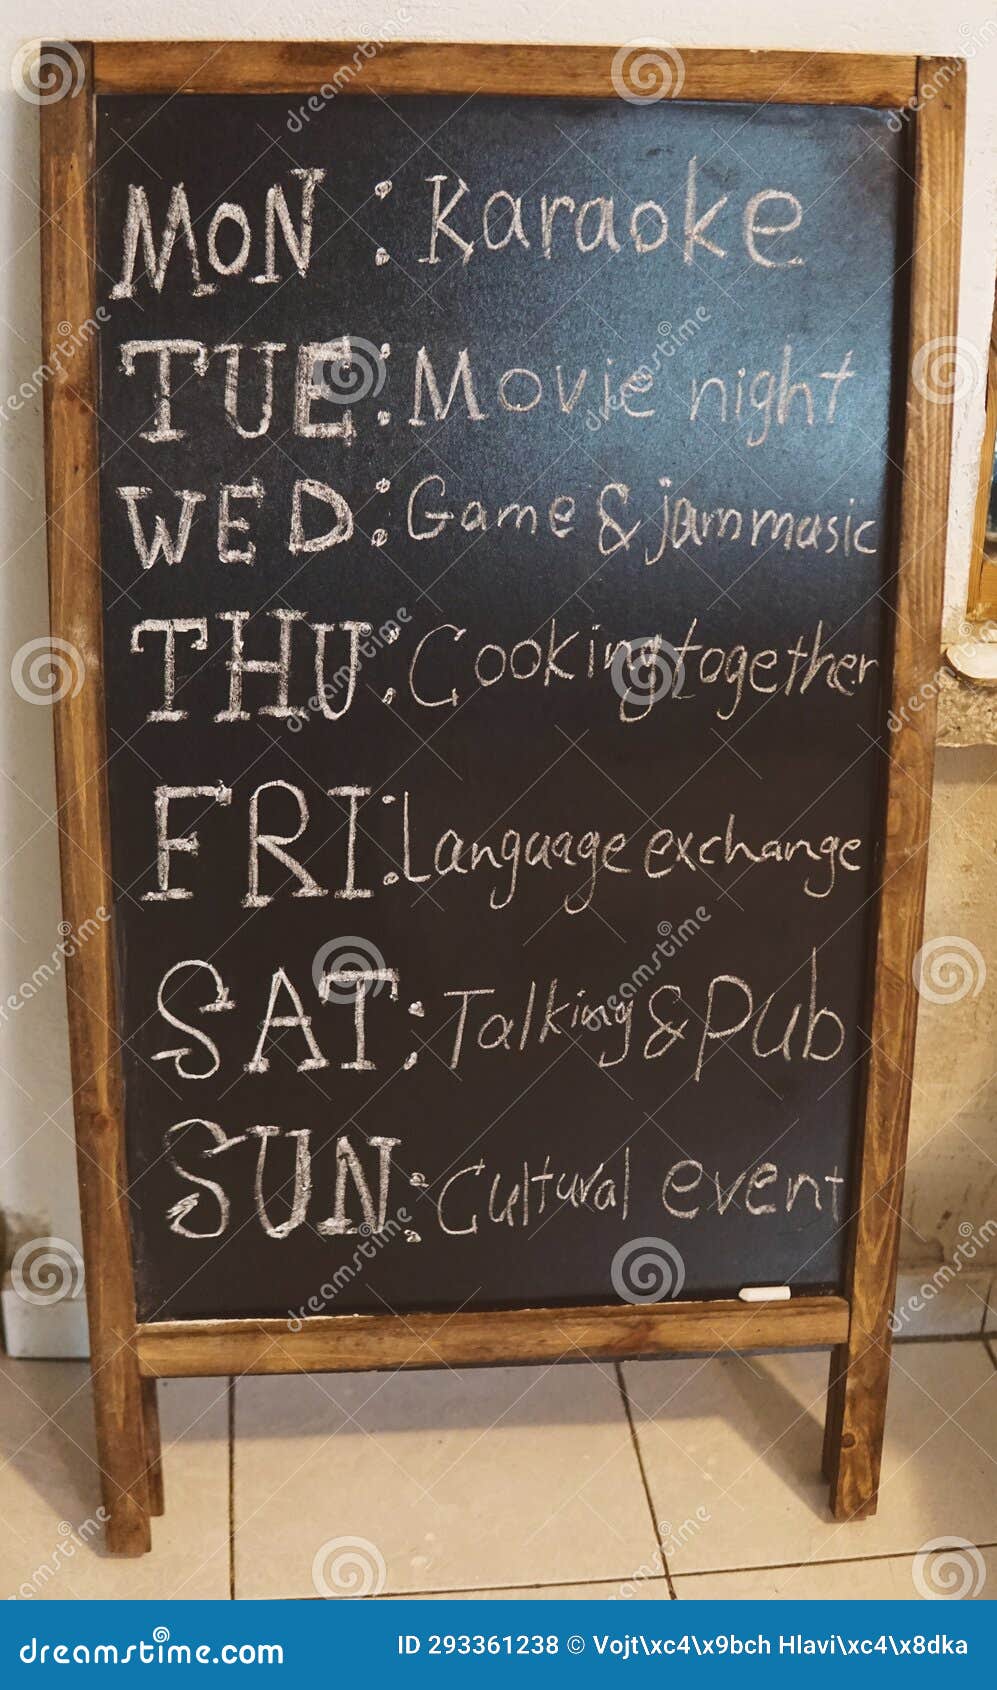 MON : Karaoke
TUE: Movie night
WED: Game & jam music
THU: Cooking together
FRI: Language exchange
SAT: Talking & Pub
SUN: Cultural event
dreamstime.com
ID 293361238 © Vojt\xc4\x9bch Hlavi\xc4\x8dka